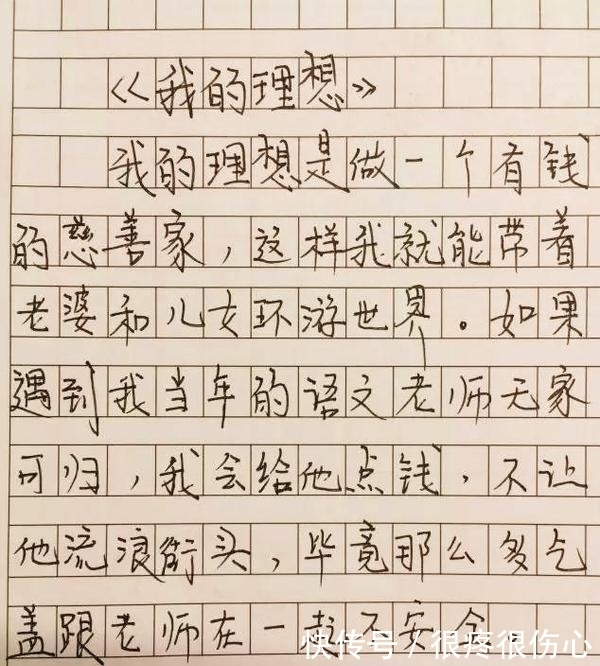 《我的理想》
我的理想是做一个有钱
的慈善家，这样我就能带着
老婆和儿女环游世界。如果
遇到我当年的语文老师无家
可归，我会给他点钱，不让
他流浪街头，毕竟那么多乞
盖跟老师在一起不安全
快传号/很疼很伤心